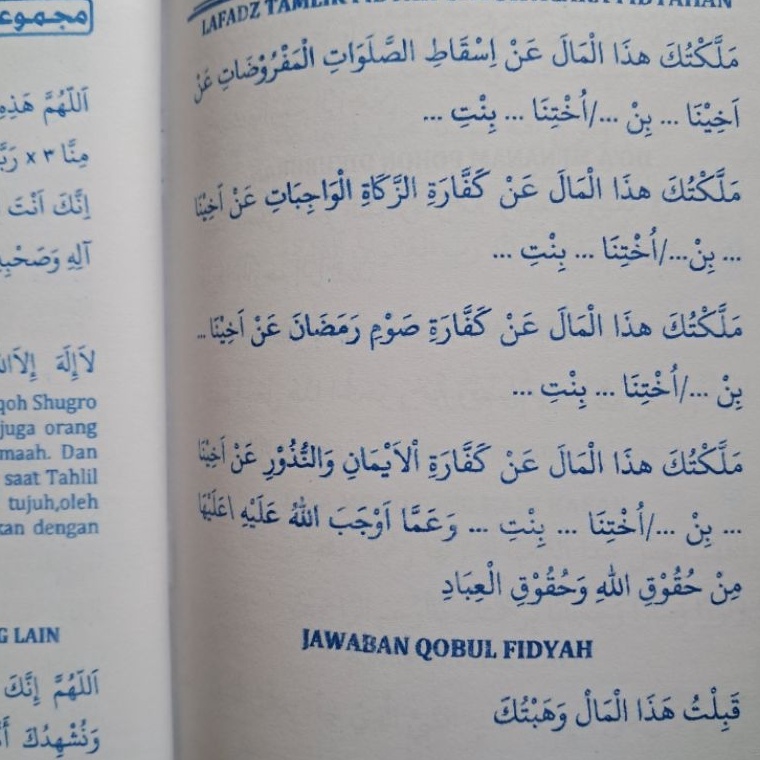 LAFADZ TAMLIK FIDYAH
مَلَّكْتُكَ هذَا الْمَالَ عَنْ اِسْقَاطِ الصَّلَوَاتِ الْمَفْرُوْضَاتِ عَنْ
اَخِيْنَا ... بِنْ .../اُخْتِنَا ... بِنْتِ ...
مَلَّكْتُكَ هذَا الْمَالَ عَنْ كَفَّارَةِ الزَّكَاةِ الْوَاجِبَاتِ عَنْ اَخِيْنَا
... بِنْ.../اُخْتِنَا ... بِنْتِ ...
مَلَّكْتُكَ هذَا الْمَالَ عَنْ كَفَّارَةِ صَوْمِ رَمَضَانَ عَنْ اَخِيْنَا ...
بِنْ .../اُخْتِنَا ... بِنْتِ ...
مَلَّكْتُكَ هذَا الْمَالَ عَنْ كَفَّارَةِ اْلاَيْمَانِ وَالنُّذُوْرِ عَنْ اَخِيْنَا
... بِنْ .../اُخْتِنَا ... بِنْتِ ... وَعَمَّا اَوْجَبَ اللهُ عَلَيْهِ /عَلَيْهَا
مِنْ حُقُوْقِ اللهِ وَحُقُوْقِ الْعِبَادِ
JAWABAN QOBUL FIDYAH
قَبِلْتُ هَذَا الْمَالْ وَهَبْتُكَ
مجموع
اَللّٰهُمَّ هَذِهِ
مِنَّا ٣ x
اِنَّكَ اَنْتَ
آلِهِ وَصَحْبِهِ
لاَإِلَهَ
Shugro
juga orang
maah. Dan
saat Tahlil
tujuh,oleh
kan dengan
LAIN
اَللّٰهُمَّ إِنَّكَ
وَنُشْهِدُكَ